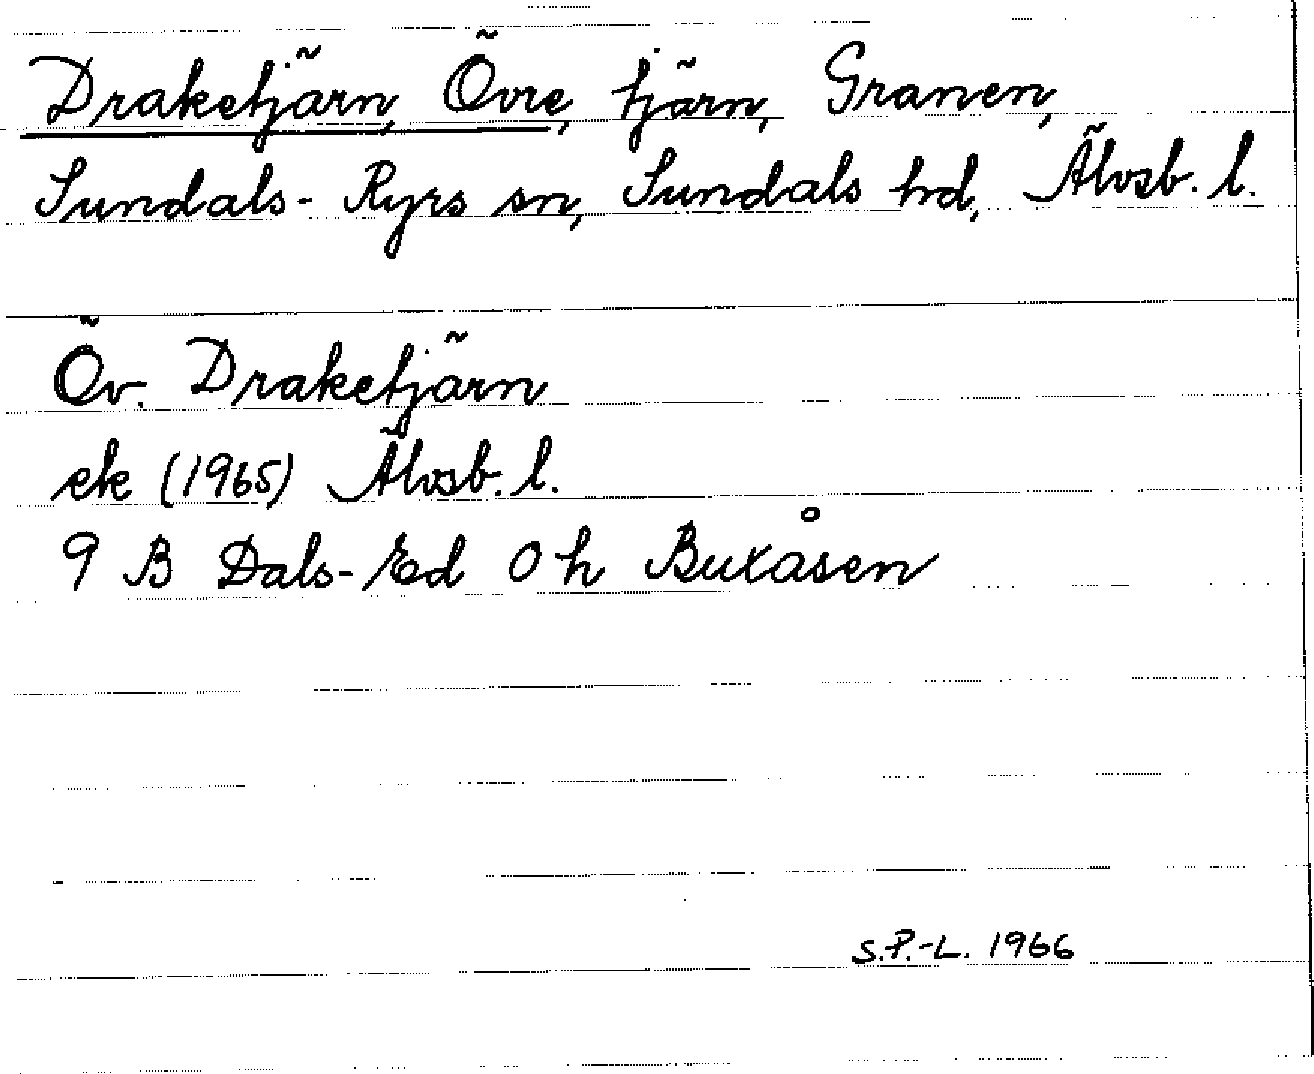 Draketjärn, Övre, tjärn, Granen,
Sundals-Ryrs sn, Sundals hd, Älvsb. l.
Öv. Draketjärn
ek (1965) Älvsb. l.
9 B Dals-Ed 0 h Buxåsen
S.P.-L. 1966